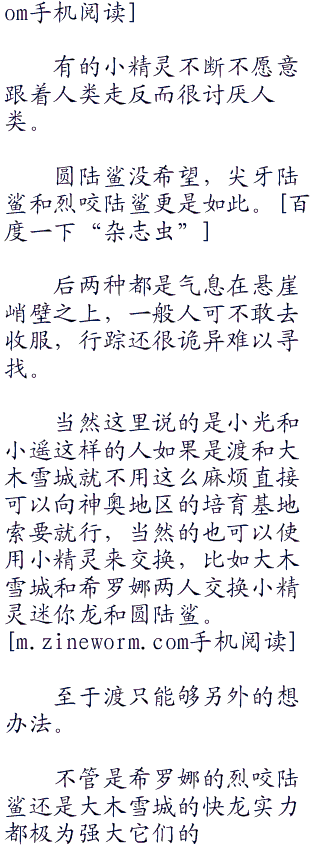 om手机阅读]
有的小精灵不断不愿意
跟着人类走反而很讨厌人
类。
圆陆鲨没希望，尖牙陆
鲨和烈咬陆鲨更是如此。[百
度一下“杂志虫”]
后两种都是气息在悬崖
峭壁之上，一般人可不敢去
收服，行踪还很诡异难以寻
找。
当然这里说的是小光和
小遥这样的人如果是渡和大
木雪城就不用这么麻烦直接
可以向神奥地区的培育基地
索要就行，当然的也可以使
用小精灵来交换，比如大木
雪城和希罗娜两人交换小精
灵迷你龙和圆陆鲨。
[m.zineworm.com手机阅读]
至于渡只能够另外的想
办法。
不管是希罗娜的烈咬陆
鲨还是大木雪城的快龙实力
都极为强大它们的